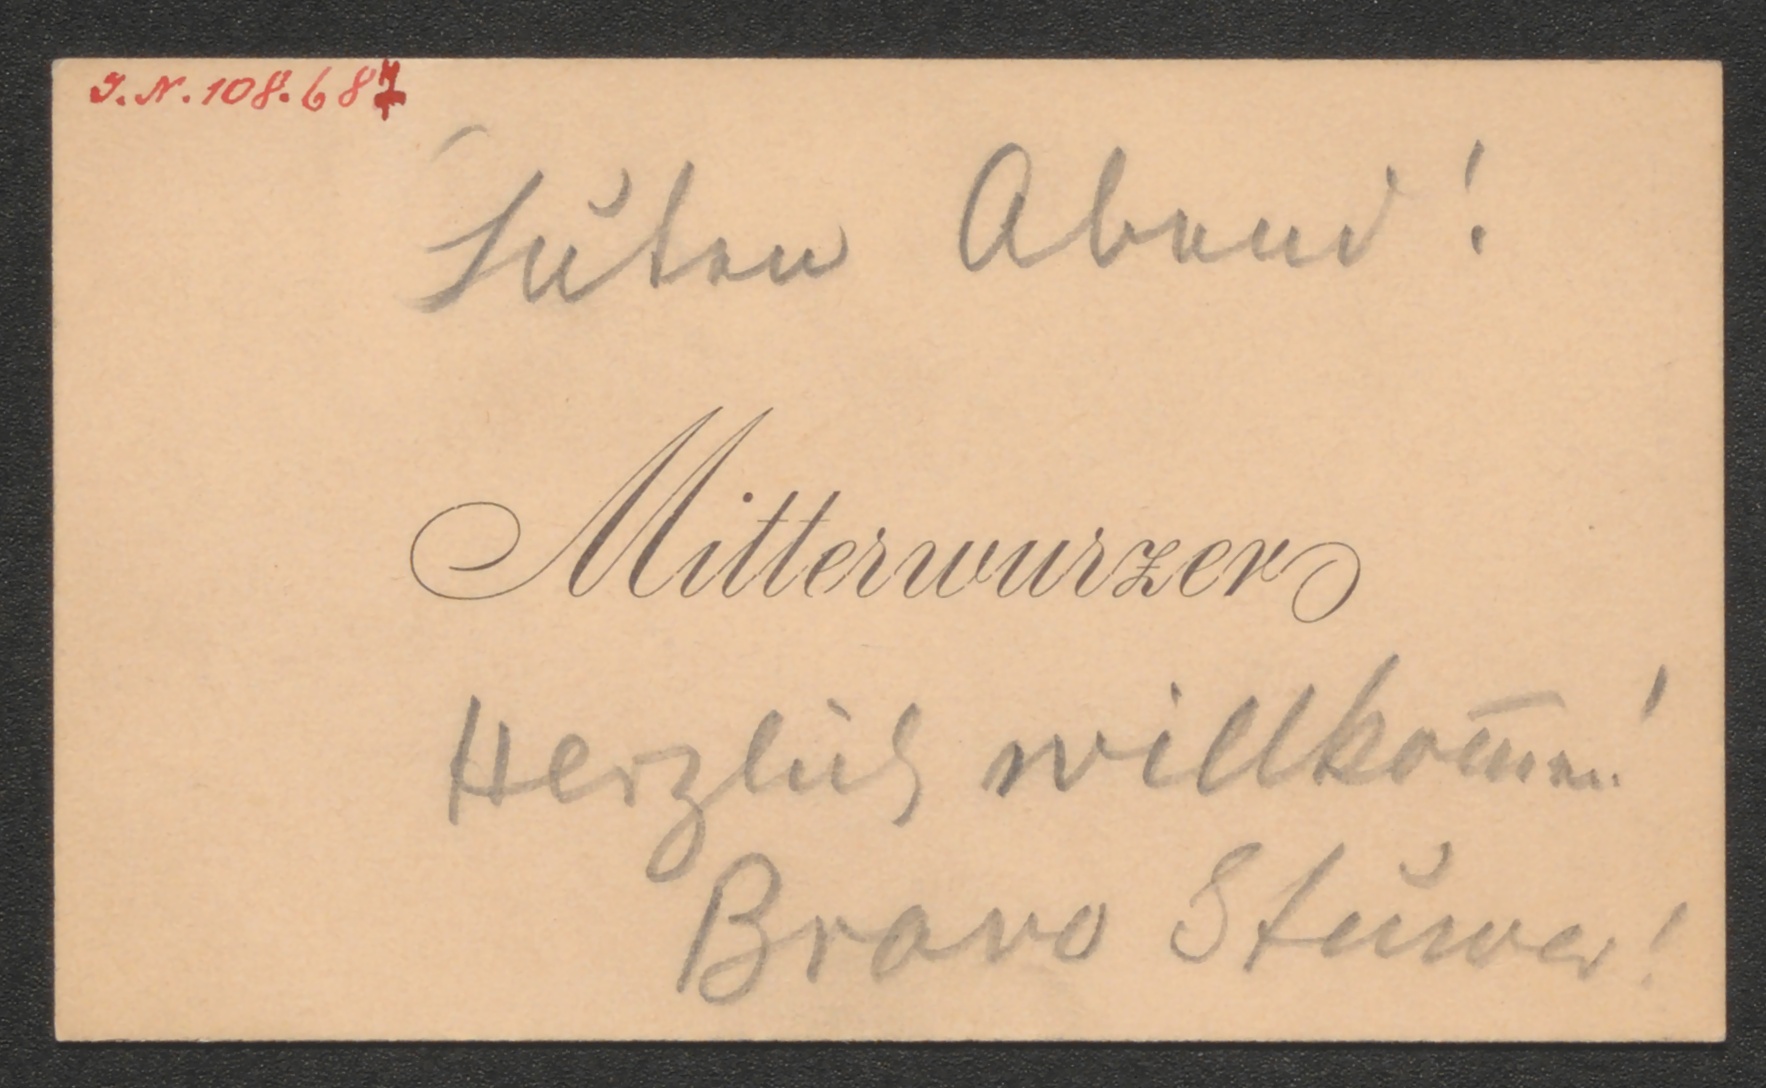 J.N. 108.687
Guten Abend!
Mitterwurzer
Herzlich willkom̅en!
Bravo Stuwer!